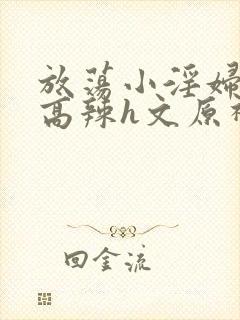 放荡小淫婦
高辣h文原
回金流